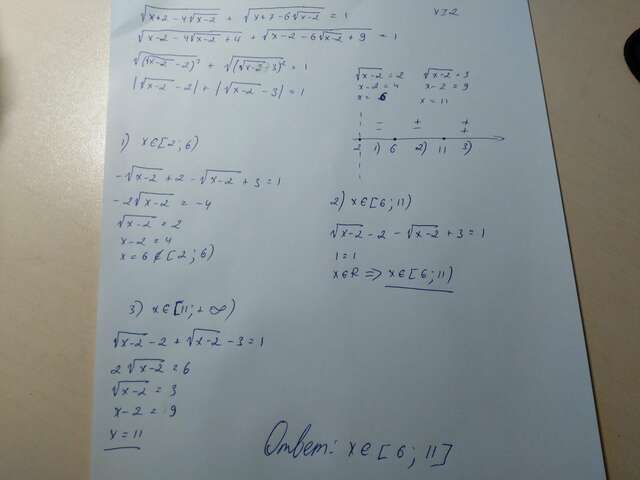 √(x+2-4√(x-2)) + √(x+7-6√(x-2)) = 1
x≥2
√(x-2-4√(x-2)+4) + √(x-2-6√(x-2)+9) = 1
√((√(x-2)-2)²) + √((√(x-2)-3)²) = 1
|√(x-2)-2| + |√(x-2)-3| = 1
√(x-2) = 2 √(x-2) = 3
x-2=4 x-2=9
x=6 x=11
- ± +
- - +
2 1) 6 2) 11 3)
1) x∈[2;6)
-√(x-2)+2-√(x-2)+3=1
-2√(x-2) = -4
√(x-2) = 2
x-2=4
x=6∉[2;6)
2) x∈[6;11)
√(x-2)-2-√(x-2)+3=1
1=1
x∈R ⇒ x∈[6;11)
3) x∈[11;+∞)
√(x-2)-2+√(x-2)-3=1
2√(x-2)=6
√(x-2)=3
x-2=9
x=11
Ответ: x∈[6;11]